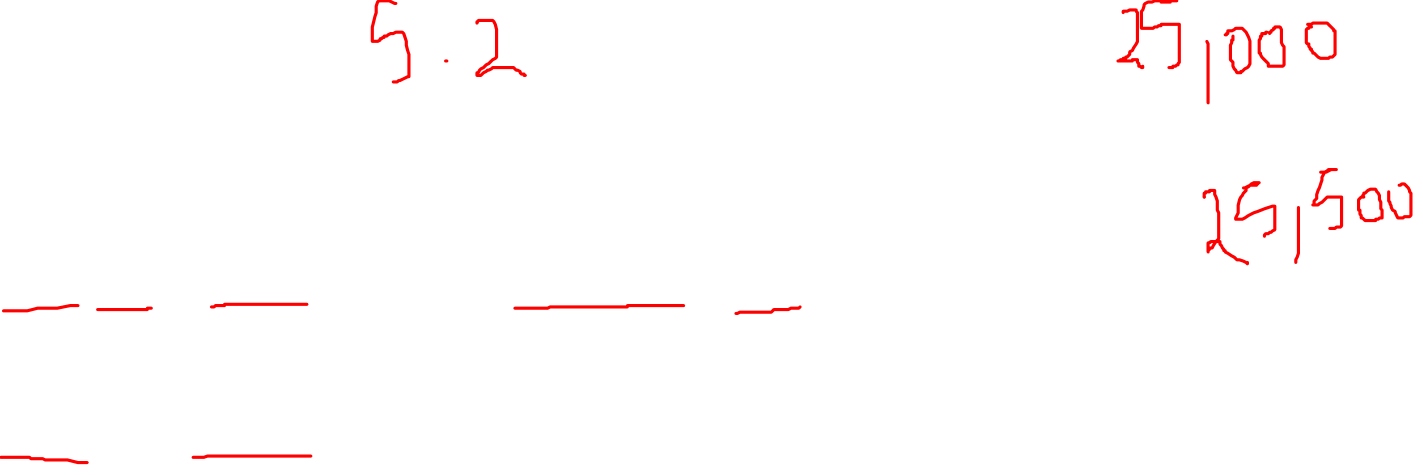 5.2
25,000
25,500